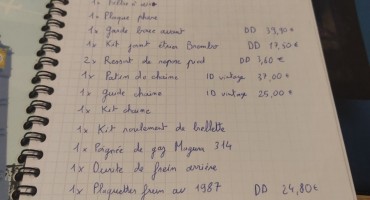 1x
1x Plaque phare
1x Garde boue avant DD 39,90 €
1x Kit joint étrier Brembo DD 17,50 €
2x Ressort de repose pied DD 7,60 €
1x Patin de chaîne ID vintage 37,00 €
1x guide chaîne ID vintage 25,00 €
1x Kit chaîne
1x Kit roulement de biellette
1x Poignée de gaz Magura 314
1x Durite de frein arrière
1x Plaquettes frein av 1987 DD 24,80 €